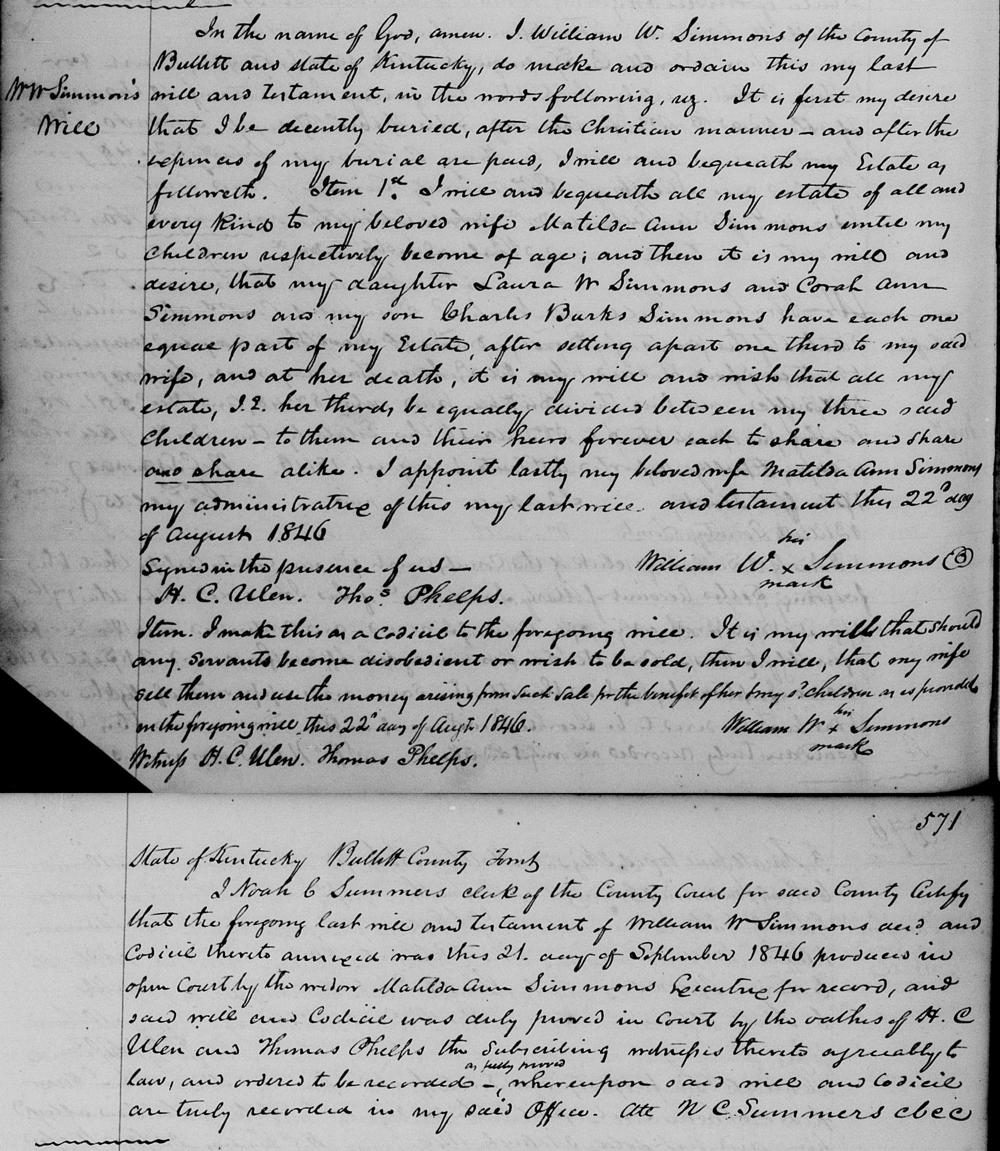 In the name of God, amen. I. William W. Simmons of the County of
Bullitt and state of Kentucky, do make and ordain this my last
W W Simmons's
Will
will and testament, in the words following, viz. It is first my desire
that I be decently buried, after the Christian manner – and after the
expences of my burial are paid, I will and bequeath my Estate as
followeth. Item 1st. I will and bequeath all my estate of all and
every kind to my beloved wife Matilda Ann Simmons until my
children respectively become of age; and then it is my will and
desire, that my daughter Laura W Simmons and Corah Ann
Simmons and my son Charles Burks Simmons have each one
equal part of my Estate, after setting apart one third to my said
wife, and at her death, it is my will and wish that all my
estate, I.E. her thirds, be equally divided between my three said
Children – to them and their heirs forever each to share and share
and share alike. I appoint lastly my beloved wife Matilda Ann Simmons
my administratrix of this my last will and testament this 22d day
of August 1846
his
Signed in the presence of us – William W. x Simmons
mark
H. C. Ulen. Thos Phelps.
Item. I make this as a Codicil to the foregoing will. It is my will that should
any servants become disobedient or wish to be sold, then I will, that my wife
sell them and use the money arising from such sale for the benefit of her & my sd. children as is provided
in the foregoing will, this 22d day of Augt. 1846.
his
William W + Simmons
mark
Witness H. C. Ulen. Thomas Phelps.
571
State of Kentucky Bullitt County Sct
I Noah C Summers clerk of the County Court for said County Certify
that the foregoing last will and testament of William W Simmons decd and
Codicil thereto annexed was this 21. day of September 1846 produced in
open Court by the widow Matilda Ann Simmons Executrix for record, and
said will and Codicil was duly proved in Court by the oathes of H. C
Ulen and Thomas Phelps the Subscribing witnesses thereto agreeably to
as fully proved
law, and ordered to be recorded –, whereupon said will and Codicil
are truly recorded in my said Office. Att N C. Summers clcc